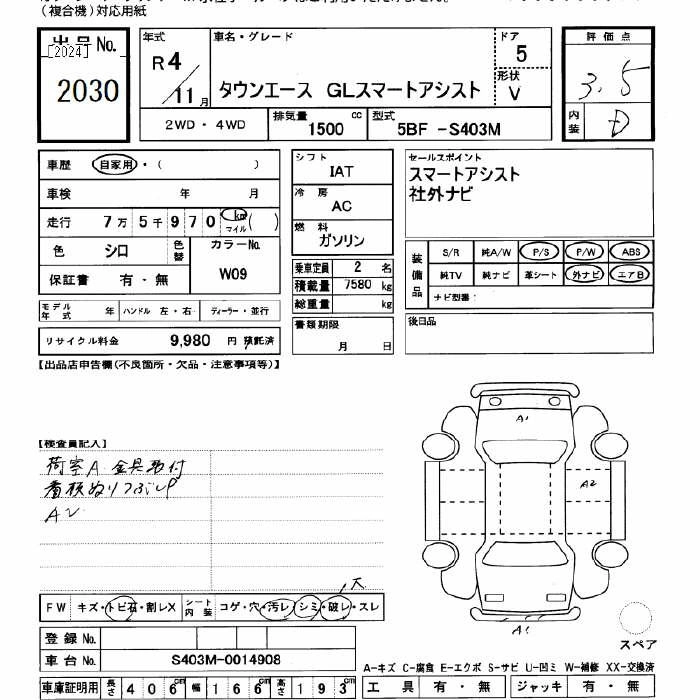 (複合機)対応用紙
出品No.
[2024]
2030
年式
R4/11月
車名・グレード
タウンエース GLスマートアシスト
ドア
5
形状
V
2WD・4WD
排気量 1500 cc
型式 5BF -S403M
評価点
3.5
内装 D
車歴 自家用・( )
車検 年 月
走行 7万5千970 km マイル( )
色 シロ 色替
カラーNo. W09
保証書 有・無
モデル年式 年 ハンドル 左・右 ディーラー・並行
リサイクル料金 9,980 円 預託済
シフト
IAT
冷房
AC
燃料
ガソリン
乗車定員 2 名
積載量 7580 kg
総重量 kg
書類期限
月 日
セールスポイント
スマートアシスト
社外ナビ
装備品
S/R 純A/W P/S P/W ABS
純TV 純ナビ 革シート 外ナビ エアB
ナビ型番:
後日品
【出品店申告欄(不良箇所・欠品・注意事項等)】
【検査員記入】
荷室A 金具取付
看板ぬりつぶしP
A2
A1
A2
A1
スペア
FW キズ・トビ石・割レX シート内装 コゲ・穴・汚レ・シミ・破レ・スレ
大
登録No.
車台No. S403M-0014908
車庫証明用 長さ 406cm 幅 166cm 高さ 193cm
A-キズ C-腐食 E-エクボ S-サビ U-凹ミ W-補修 XX-交換済
工具 有・無 ジャッキ 有・無